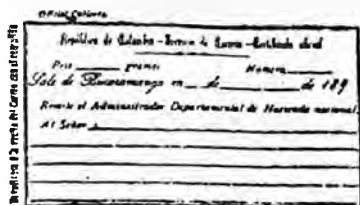 Oficial
República de Colombia – Servicio de Correos – Certificado oficial
Peso gramos Número
Sale de Bucaramanga en de de 189
Remite el Administrador Departamental de Hacienda nacional
Al Señor